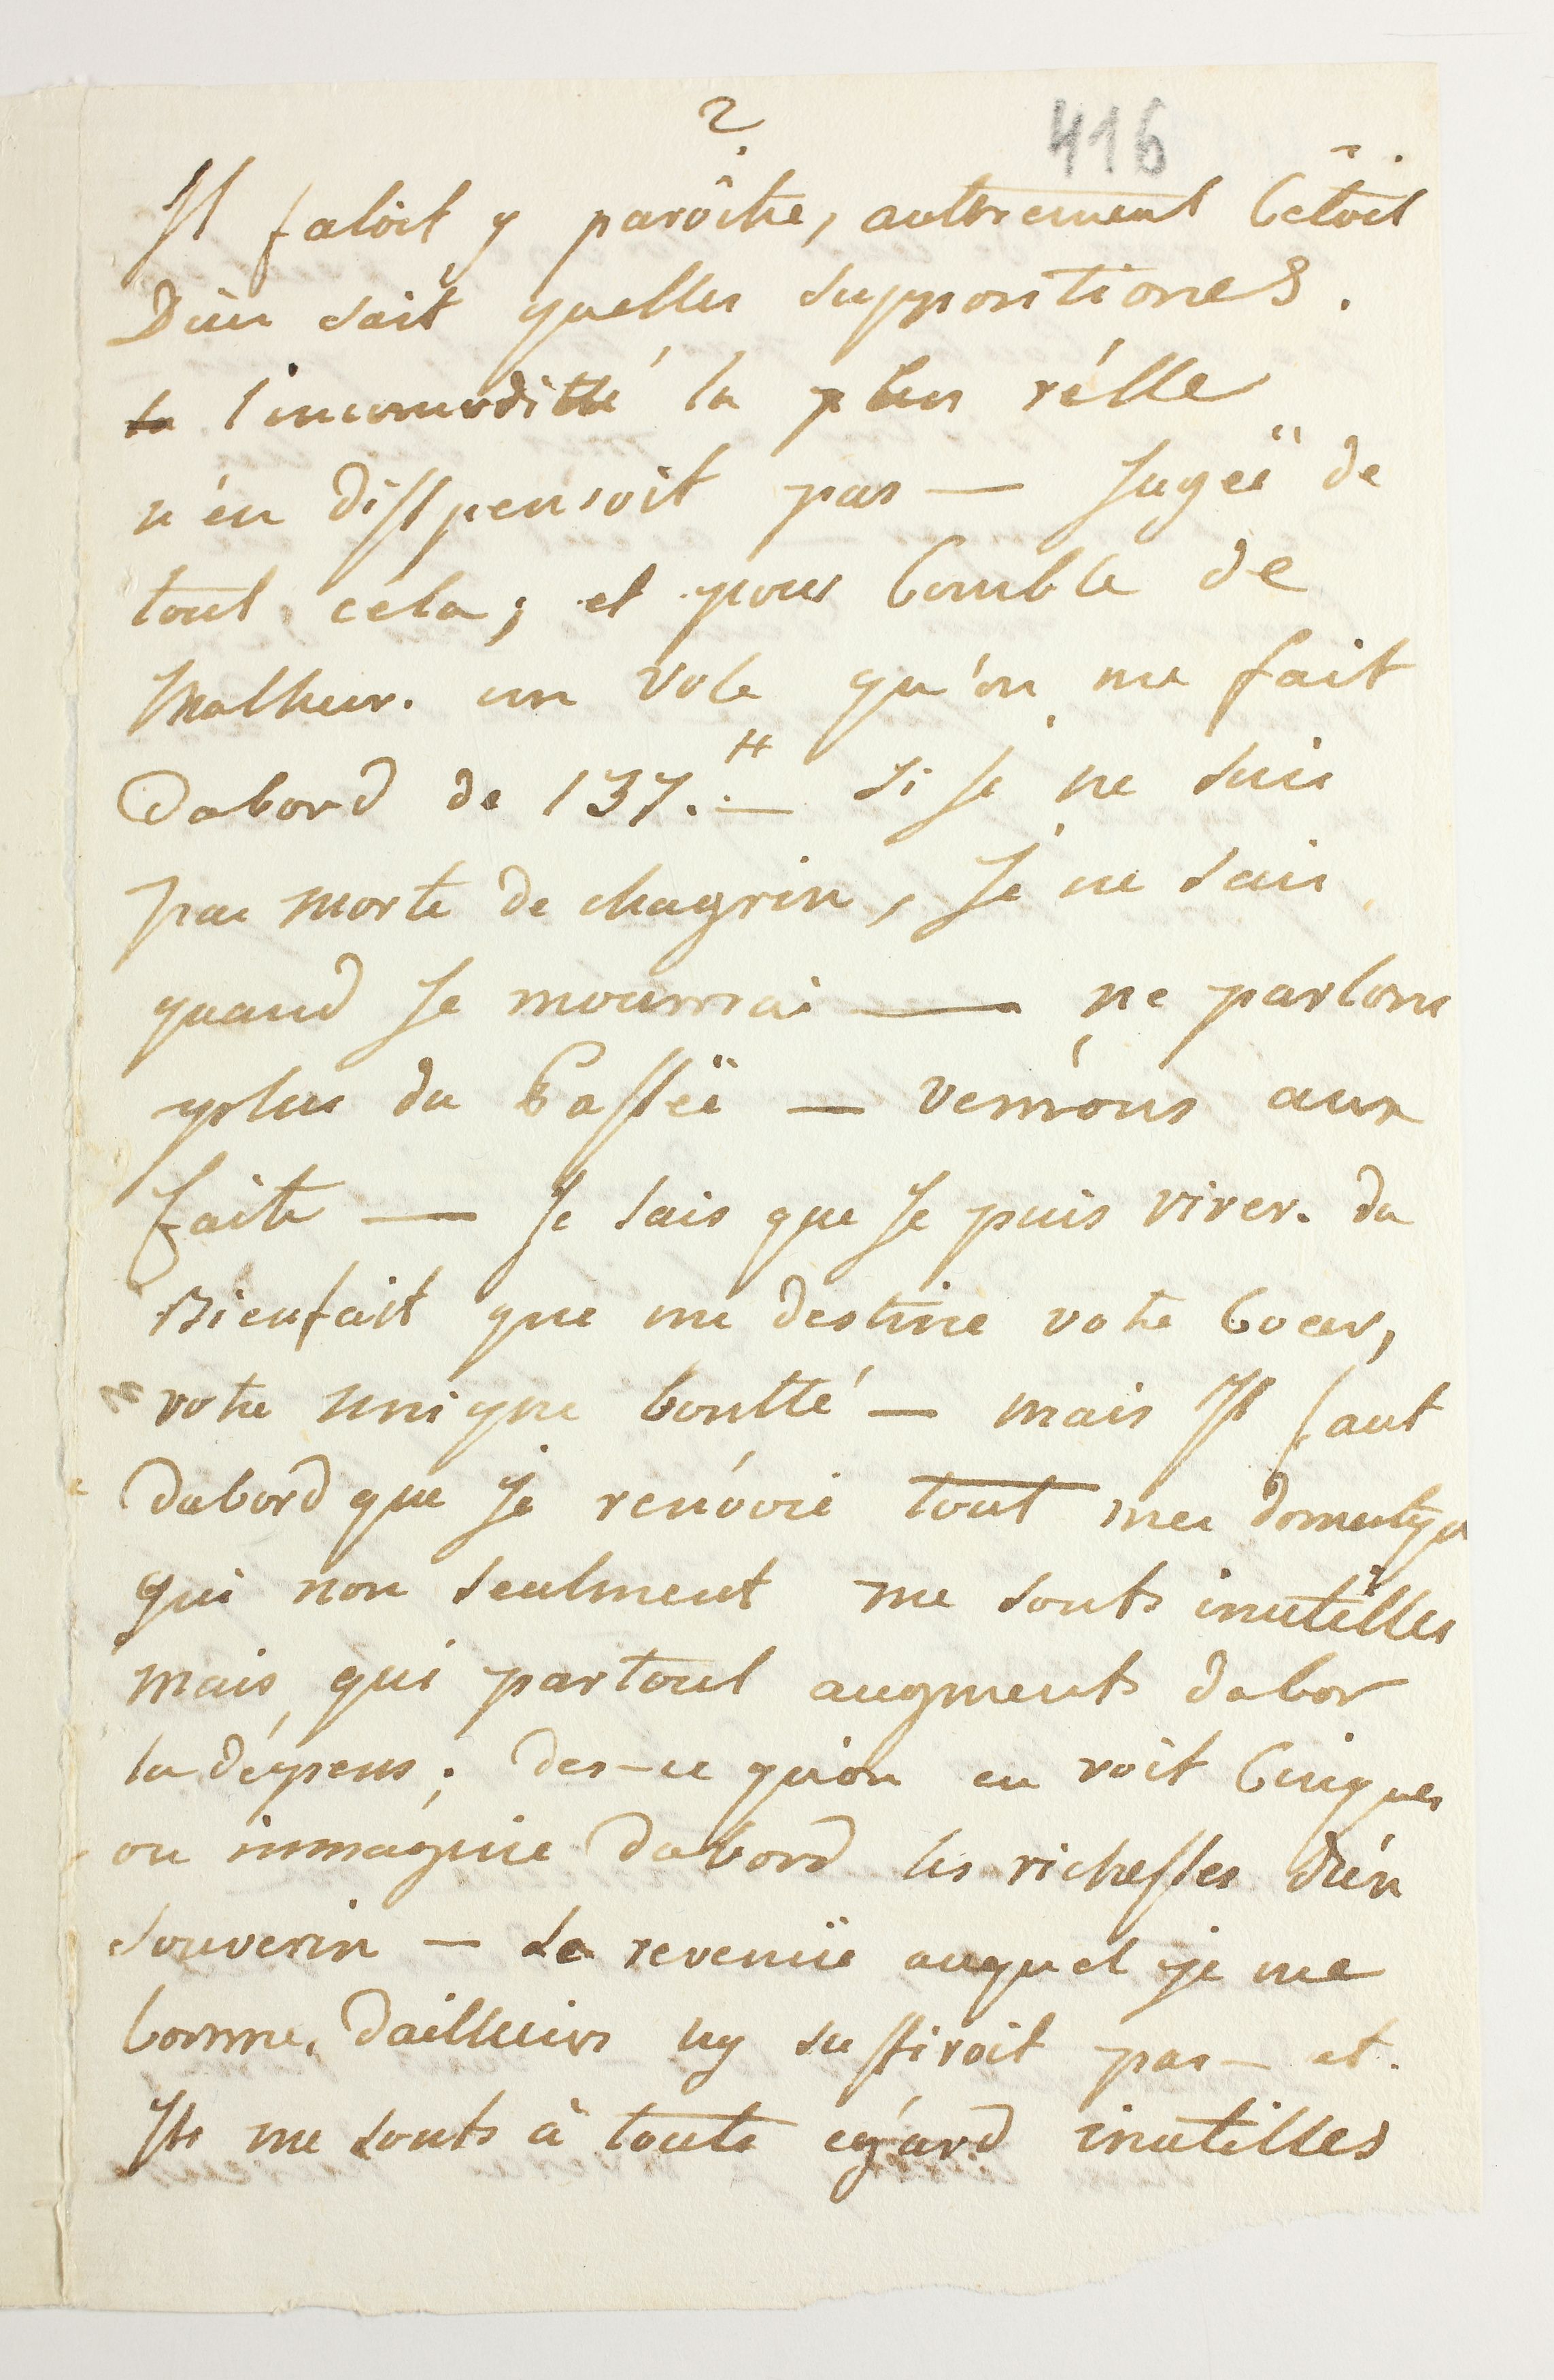 2
416
Il faloit y parôitre, autrement C'etoit
Dieu sait quelles suppositiones.
la l'incomoditté la plus rélle
n'en disspensoit pas — Jugeï de
tout cela; et pour Comble de
Malheur. un vole qu'on me fait
Dabord de 137.# — si Je ne suis
pas morte de chagrin, Je ne sais
quand Je mourrai — ne parlons
plus du Passeï — venrons aux
faite — Je sais que Je puis viver. du
Bienfait que me destine votre Coeur,
votre unique bontté — mais Il faut
Dabord que Je renvoie tout mes domestques
qui non seulment me sonts inutilles
mais qui partout augments dabor
la dépens; des-ce qu'on en voit Cinques
on immagine Dabord les richesses d'un
souverin — Le revenüe auquel je me
borne, D'ailleurs ny suffiroit pas — et.
Ils me sonts à toute égard inutilles